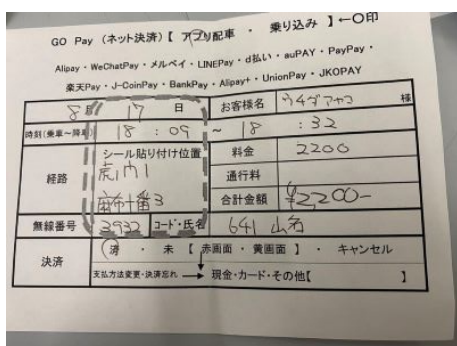 GO Pay (ネット決済)【 アプリ配車 ・ 乗り込み 】←○印
Alipay・WeChatPay・メルペイ・LINEPay・d払い・auPAY・PayPay・
楽天Pay・J-CoinPay・BankPay・Alipay+・UnionPay・JKOPAY
8月 17 日 お客様名 ウイダアヤコ 様
時刻(乗車~降車) 18:09 ~ 18:32
経路 シール貼り付け位置 料金 2200
虎ノ門1 通行料
麻布十番3 合計金額 ¥2200-
無線番号 3932 コード・氏名 641 山名
決済 済 ・ 未 【 赤画面 ・ 黄画面 】 ・ キャンセル
支払方法変更・決済忘れ → 現金・カード・その他【 】